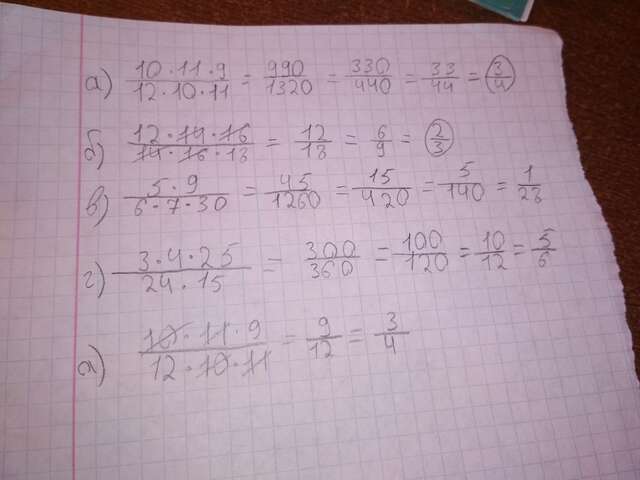 а) 10·11·9/12·10·11 = 990/1320 = 330/440 = 33/44 = 3/4
б) 12·14·16/14·16·18 = 12/18 = 6/9 = 2/3
в) 5·9/6·7·30 = 45/1260 = 15/420 = 5/140 = 1/28
г) 3·4·25/24·15 = 300/360 = 100/120 = 10/12 = 5/6
а) 10·11·9/12·10·11 = 9/12 = 3/4